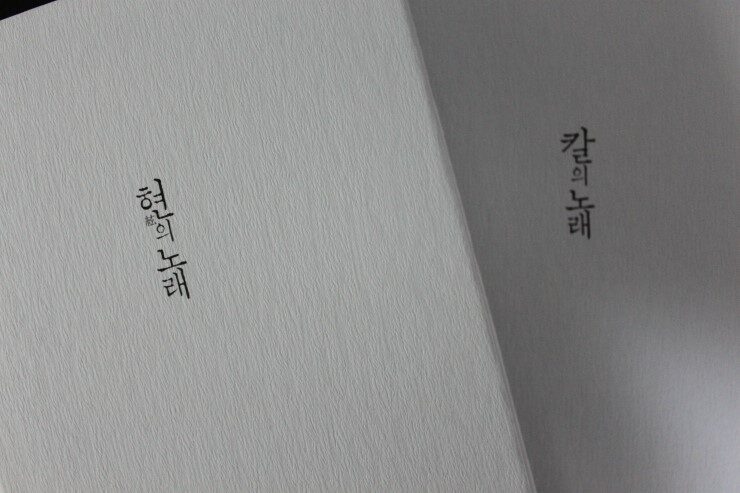 현의 노래
칼의 노래